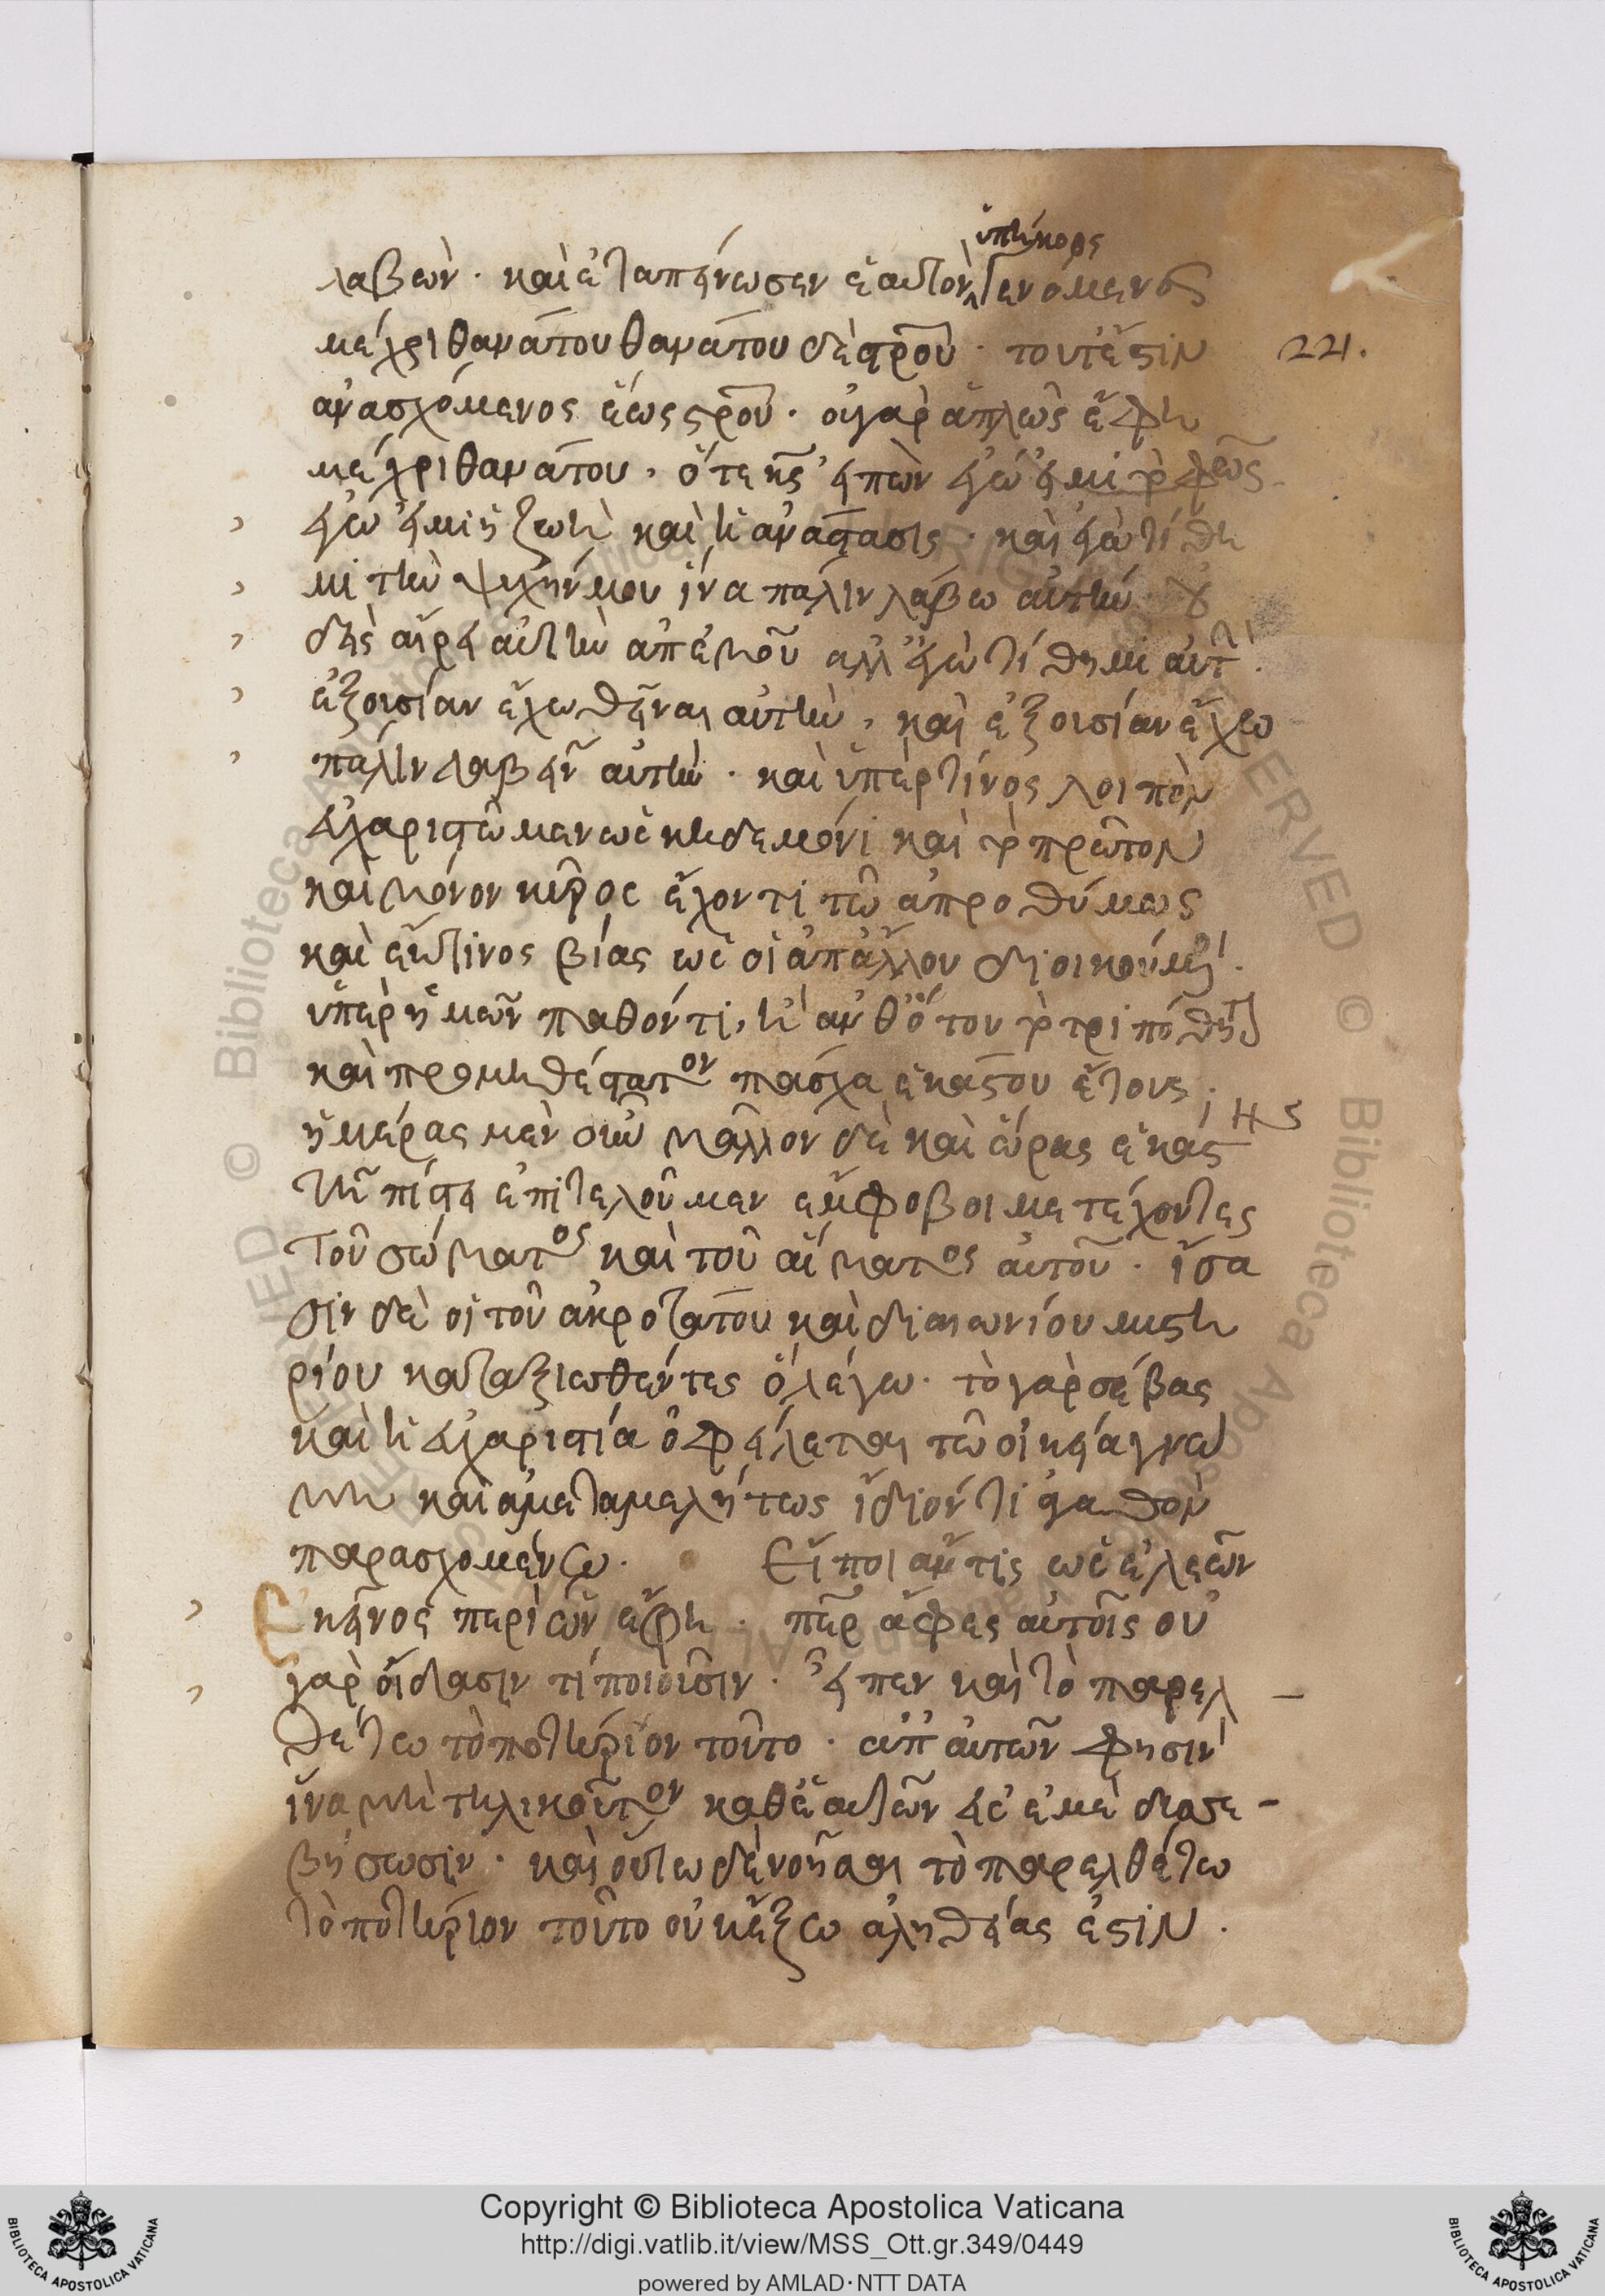 ὑπήκοος
λαβών · καὶ ἐταπείνωσεν ἑαυτὸν γενόμενος
μέχρι θανάτου θανάτου δὲ σταυροῦ · τουτέστιν 221.
ἀνασχόμενος ἕως σταυροῦ · οὐ γὰρ ἁπλῶς ἔφη
μέχρι θανάτου, ὅτε εἰπὼν ἐγώ εἰμι τὸ φῶς
ἐγώ εἰμι ἡ ζωὴ καὶ ἡ ἀνάστασις · καὶ ἐγὼ τίθη
μι τὴν ψυχήν μου ἵνα πάλιν λάβω αὐτήν οὐ
δεὶς αἴρει αὐτὴν ἀπ ἐμοῦ ἀλλ ἐγὼ τίθημι αὐτήν.
ἐξουσίαν ἔχω θεῖναι αὐτὴν, καὶ ἐξουσίαν ἔχω
πάλιν λαβεῖν αὐτήν · καὶ ὑπέρ τίνος λοιπὸν
εὐχαριστῶμεν ὡς κηδεμόνι καὶ τὸ πρῶτον
καὶ μόνον κῦρος ἔχοντι τῷ ἀπροθύμως
καὶ ἔκ τινος βίας ὡς οἱ ἀπ ἄλλου διοικούμενοι.
ὑπὲρ ἡμῶν παθόντι, ἢ ἀνθ ὅτου τὸ τριπόθητον
καὶ προμηθέστατον πάσχα ἑκάστου ἔτους.
ἡμέρας μὲν οὖν μᾶλλον δὲ καὶ ὥρας ἑκάστης
τῇ πίστει ἐπιτελοῦμεν ἔμφοβοι μετέχοντες
τοῦ σώματος καὶ τοῦ αἵματος αὐτοῦ · ἴσα
σιν δὲ οἱ τοῦ ἀκροτάτου καὶ διαιωνίου μυστη
ρίου καταξιωθέντες ὃ λέγω · τὸ γὰρ σέβας
καὶ ἡ εὐχαριστία ὀφείλεται τῷ οἰκείᾳ γνώ
μῃ καὶ ἀμεταμελήτως ἴδιόν τι ἀγαθὸν
παρασχομένῳ. Εἴποι ἄν τις ὡς ἐλεῶν
Ἐκεῖνος περὶ ὧν ἔφη · πάτερ ἄφες αὐτοῖς οὐ
γὰρ οἴδασιν τί ποιοῦσιν · εἶπεν καὶ τὸ παρελ
θέτω τὸ ποτήριον τοῦτο · ἀπ αὐτῶν φησιν
ἵνα μὴ τηλικοῦτον καθ ἑαυτῶν εἰς ἐμὲ δυσσε
βήσωσιν · καὶ οὕτω δὲ νοῆσαι τὸ παρελθέτω
τὸ ποτήριον τοῦτο οὐκ ἔξω ἀληθείας ἐστίν .
Copyright © Biblioteca Apostolica Vaticana
http://digi.vatlib.it/view/MSS_Ott.gr.349/0449
powered by AMLAD·NTT DATA